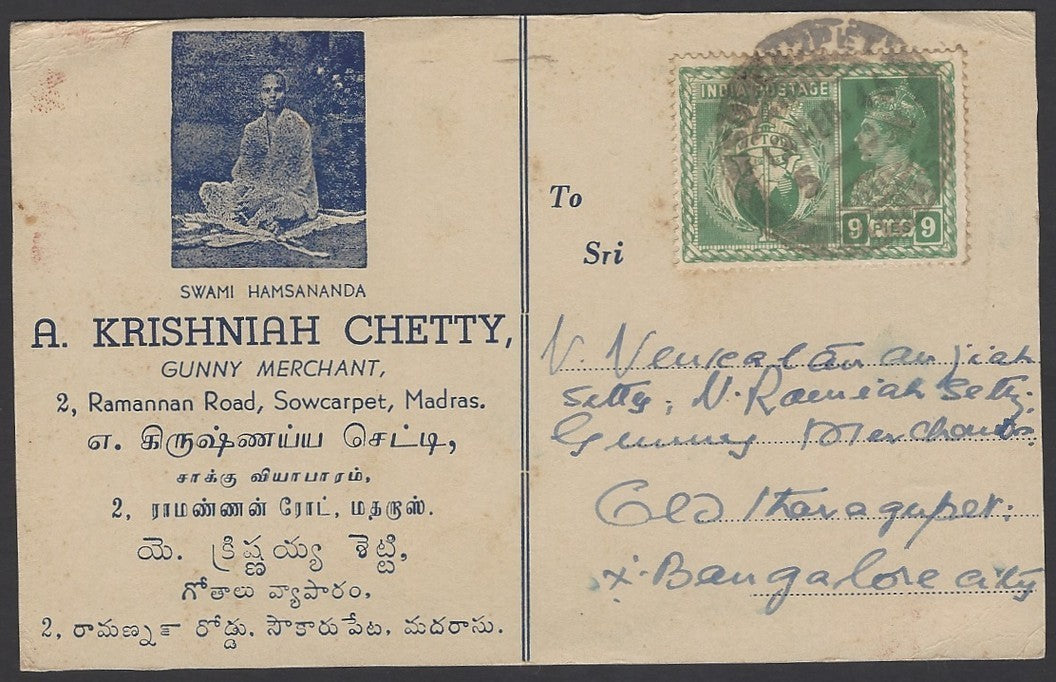 SWAMI HAMSANANDA
A. KRISHNIAH CHETTY,
GUNNY MERCHANT,
2, Ramannan Road, Sowcarpet, Madras.
எ. கிருஷ்ணய்ய செட்டி,
சாக்கு வியாபாரம்,
2, ராமண்ணன் ரோட், மதறாஸ்.
యె. క్రిష్ణయ్య శెట్టి,
గోతాలు వ్యాపారం,
2, రామణ్ణన్ రోడ్డు. సౌకారుపేట, మదరాసు.
INDIA POSTAGE
VICTORY
9 PIES 9
To
Sri
V. Venkataramanjiah
Setty, N. Ramiah Setty.
Gunny Merchants
Old Tharagupet.
X. Bangalore City